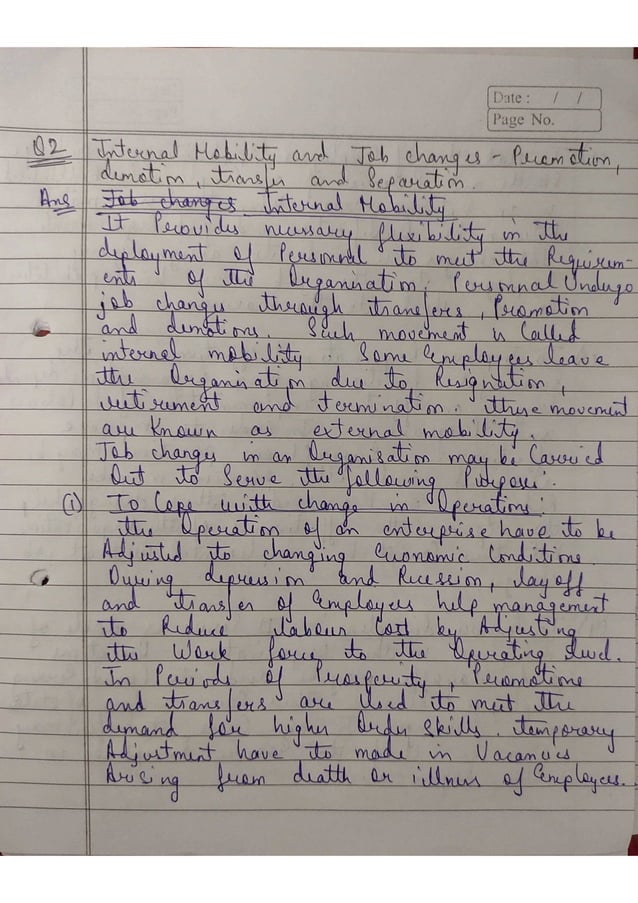 Date : / /
Page No.
Q2 Internal Mobility and Job changes - Promotion,
demotion, transfer and Separation.
Ans Job changes Internal Mobility
It Provides necessary flexibility in the
deployment of Personnal to meet the Requirem-
ents of the Organisation. Personnal Undergo
job changes through transfers, Promotion
and demotions. Such movement is Called
internal mobility. Some Employees leave
the Organisation due to Resignation,
retirement and termination. these movement
are Known as external mobility.
Job changes in an Organisation may be Carried
Out to Serve the following Purpose:
(i) To Cope with change in Operations:
the Operation of an enterprise have to be
Adjusted to changing Economic Conditions.
During depression and Recession, lay off
and transfer of Employees help management
to Reduce labour Cost by Adjusting
the Work force to the Operating
In Periods of Prosperity, Promotions
and transfers are Used to meet the
demand for higher Order Skills. temporary
Adjustment have to made in Vacancies
Arising from death or illness of Employees.